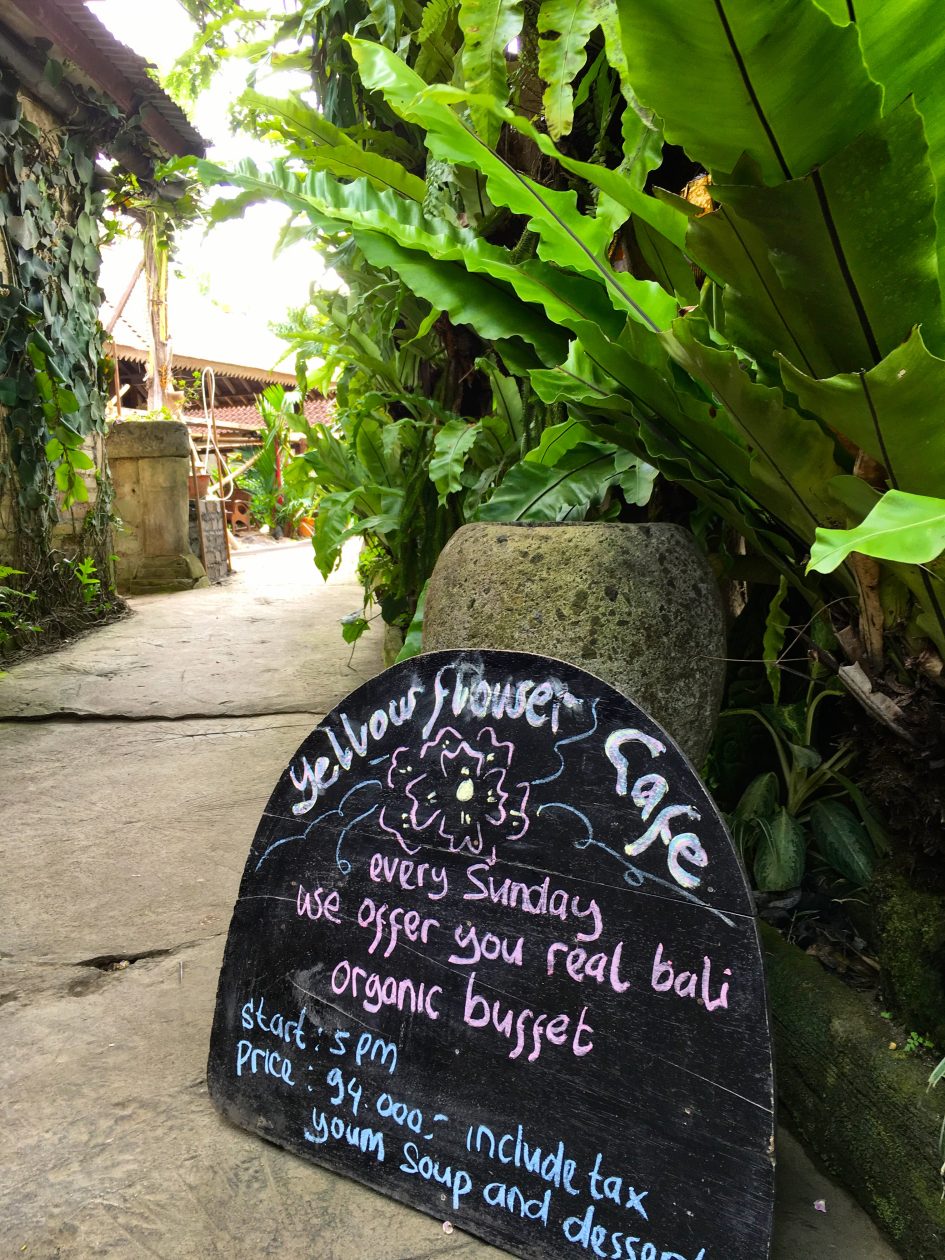 yellow flower Cafe
every Sunday
we offer you real bali
organic buffet
start : 5 pm
price : 94.000,- include tax
youm soup and dessert